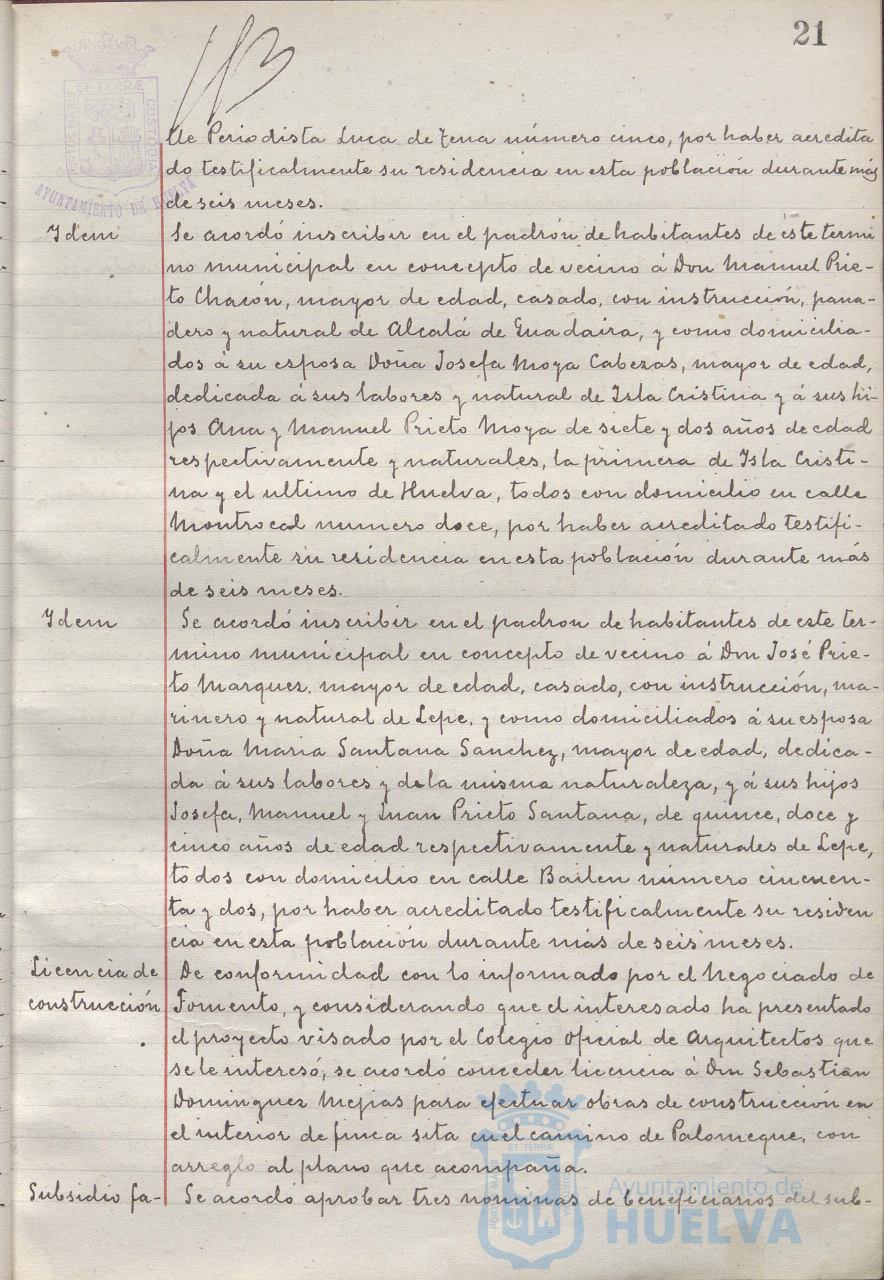 21
ET TERRÆ
PORTUS MARIS
CUSTODIA
AYUNTAMIENTO DE HUELVA
de Periodista Luca de Tena número cinco, por haber acredita
do testificalmente su residencia en esta población durante más
de seis meses.
Idem
Se acordó inscribir en el padrón de habitantes de este termi
no municipal en concepto de vecino á Don Manuel Prie-
to Chacón, mayor de edad, casado, con instrucción, pana-
dero y natural de Alcalá de Guadaira, y como domicilia-
dos á su esposa Doña Josefa Moya Cabezas, mayor de edad,
dedicada á sus labores y natural de Isla Cristina y á sus hi-
jos Ana y Manuel Prieto Moya de siete y dos años de edad
respectivamente y naturales, la primera de Isla Cristi-
na y el ultimo de Huelva, todos con domicilio en calle
Montrocal numero doce, por haber acreditado testifi-
calmente su residencia en esta población durante más
de seis meses.
Idem
Se acordó inscribir en el padron de habitantes de este ter-
mino municipal en concepto de vecino á Don José Prie-
to Marquez. mayor de edad, casado, con instrucción, ma-
rinero y natural de Lepe, y como domiciliados á su esposa
Doña Maria Santana Sanchez, mayor de edad, dedica-
da á sus labores y de la misma naturaleza, y á sus hijos
Josefa, Manuel y Juan Prieto Santana, de quince, doce y
cinco años de edad respectivamente y naturales de Lepe,
todos con domicilio en calle Bailen número cincuen-
ta y dos, por haber acreditado testificalmente su residen
cia en esta población durante más de seis meses.
Licencia de
construcción
De conformidad con lo informado por el Negociado de
Fomento, y considerando que el interesado ha presentado
el proyecto visado por el Colegio Oficial de Arquitectos que
se le interesó, se acordó conceder licencia á Don Sebastian
Dominguez Mejias para efectuar obras de construcción en
el interior de finca sita en el camino de Palomeque, con
arreglo al plano que acompaña.
Subsidio fa-
Se acordó aprobar tres nominas de beneficiarios del sub-
ET TERRÆ
Ayuntamiento de
HUELVA